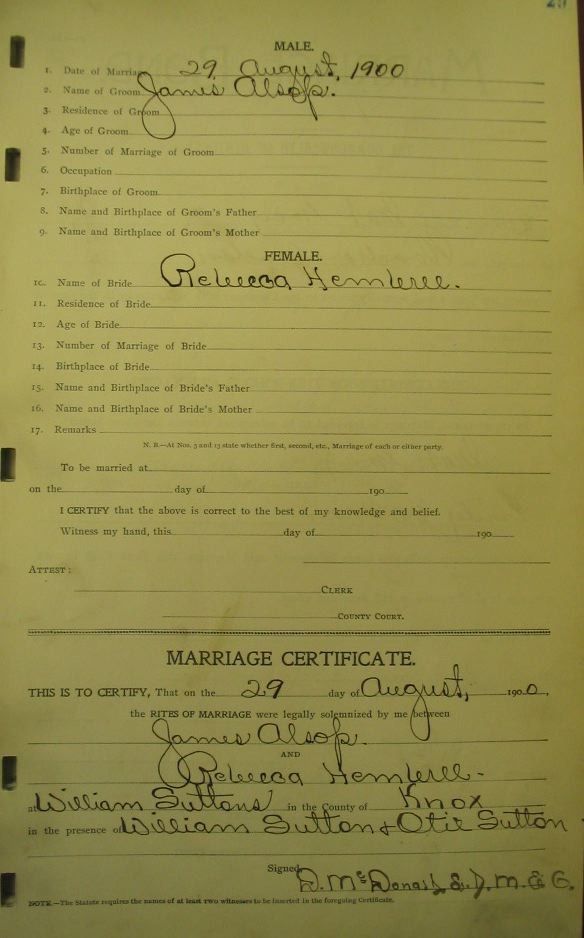 25
MALE.
1. Date of Marriage 29, August, 1900
2. Name of Groom James Alsop.
3. Residence of Groom
4. Age of Groom
5. Number of Marriage of Groom
6. Occupation
7. Birthplace of Groom
8. Name and Birthplace of Groom's Father
9. Name and Birthplace of Groom's Mother
FEMALE.
10. Name of Bride Rebecca
11. Residence of Bride
12. Age of Bride
13. Number of Marriage of Bride
14. Birthplace of Bride
15. Name and Birthplace of Bride's Father
16. Name and Birthplace of Bride's Mother
17. Remarks
N. B.—At Nos. 5 and 13 state whether first, second, etc., Marriage of each or either party.
To be married at
on the day of 190
I CERTIFY that the above is correct to the best of my knowledge and belief.
Witness my hand, this day of 190
ATTEST:
CLERK
COUNTY COURT.
MARRIAGE CERTIFICATE.
THIS IS TO CERTIFY, That on the 29 day of August, 1900,
the RITES OF MARRIAGE were legally solemnized by me between
James Alsop.
AND
Rebecca
at William Suttons in the County of Knox
in the presence of William Sutton & Otis Sutton
Signed, D. Mc
NOTE.—The Statute requires the names of at least two witnesses to be inserted in the foregoing Certificate.